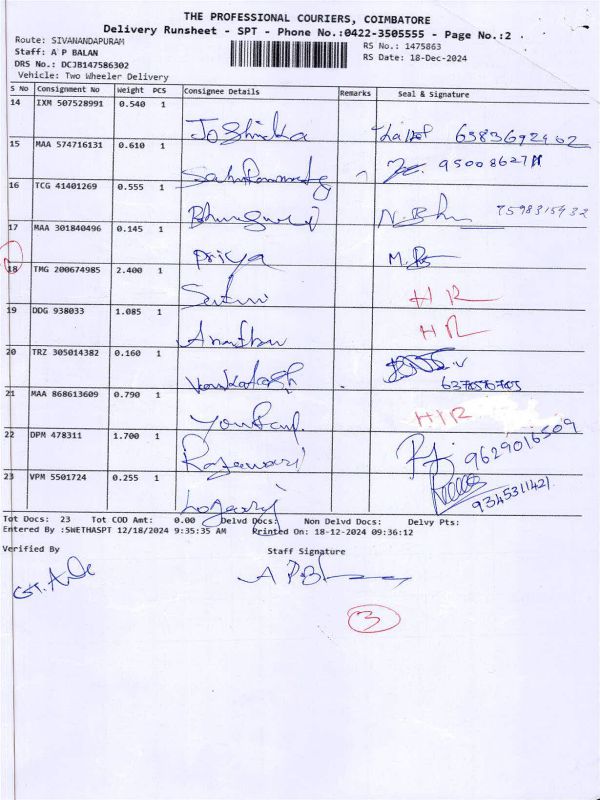 THE PROFESSIONAL COURIERS, COIMBATORE
Delivery Runsheet - SPT - Phone No.:0422-3505555 - Page No.:2
Route: SIVANANDAPURAM
RS No.: 1475863
Staff: A P BALAN
RS Date: 18-Dec-2024
DRS No.: DCJB147586302
Vehicle: Two Wheeler Delivery
S No Consignment No Weight PCS Consignee Details Remarks Seal & Signature
14 IXM 507528991 0.540 1 Joshika
15 MAA 574716131 0.610 1
16 TCG 41401269 0.555 1
17 MAA 301840496 0.145 1 Priya
18 TMG 200674985 2.400 1 HR
19 DDG 938033 1.085 1 HR
20 TRZ 305014382 0.160 1 Venkatesh
21 MAA 868613609 0.790 1 HR
22 DPM 478311 1.700 1 9629016509
23 VPM 5501724 0.255 1 9345311421
Tot Docs: 23 Tot COD Amt: 0.00 Delvd Docs: Non Delvd Docs: Delvy Pts:
Entered By :SWETHASPT 12/18/2024 9:35:35 AM Printed On: 18-12-2024 09:36:12
Verified By Staff Signature
3